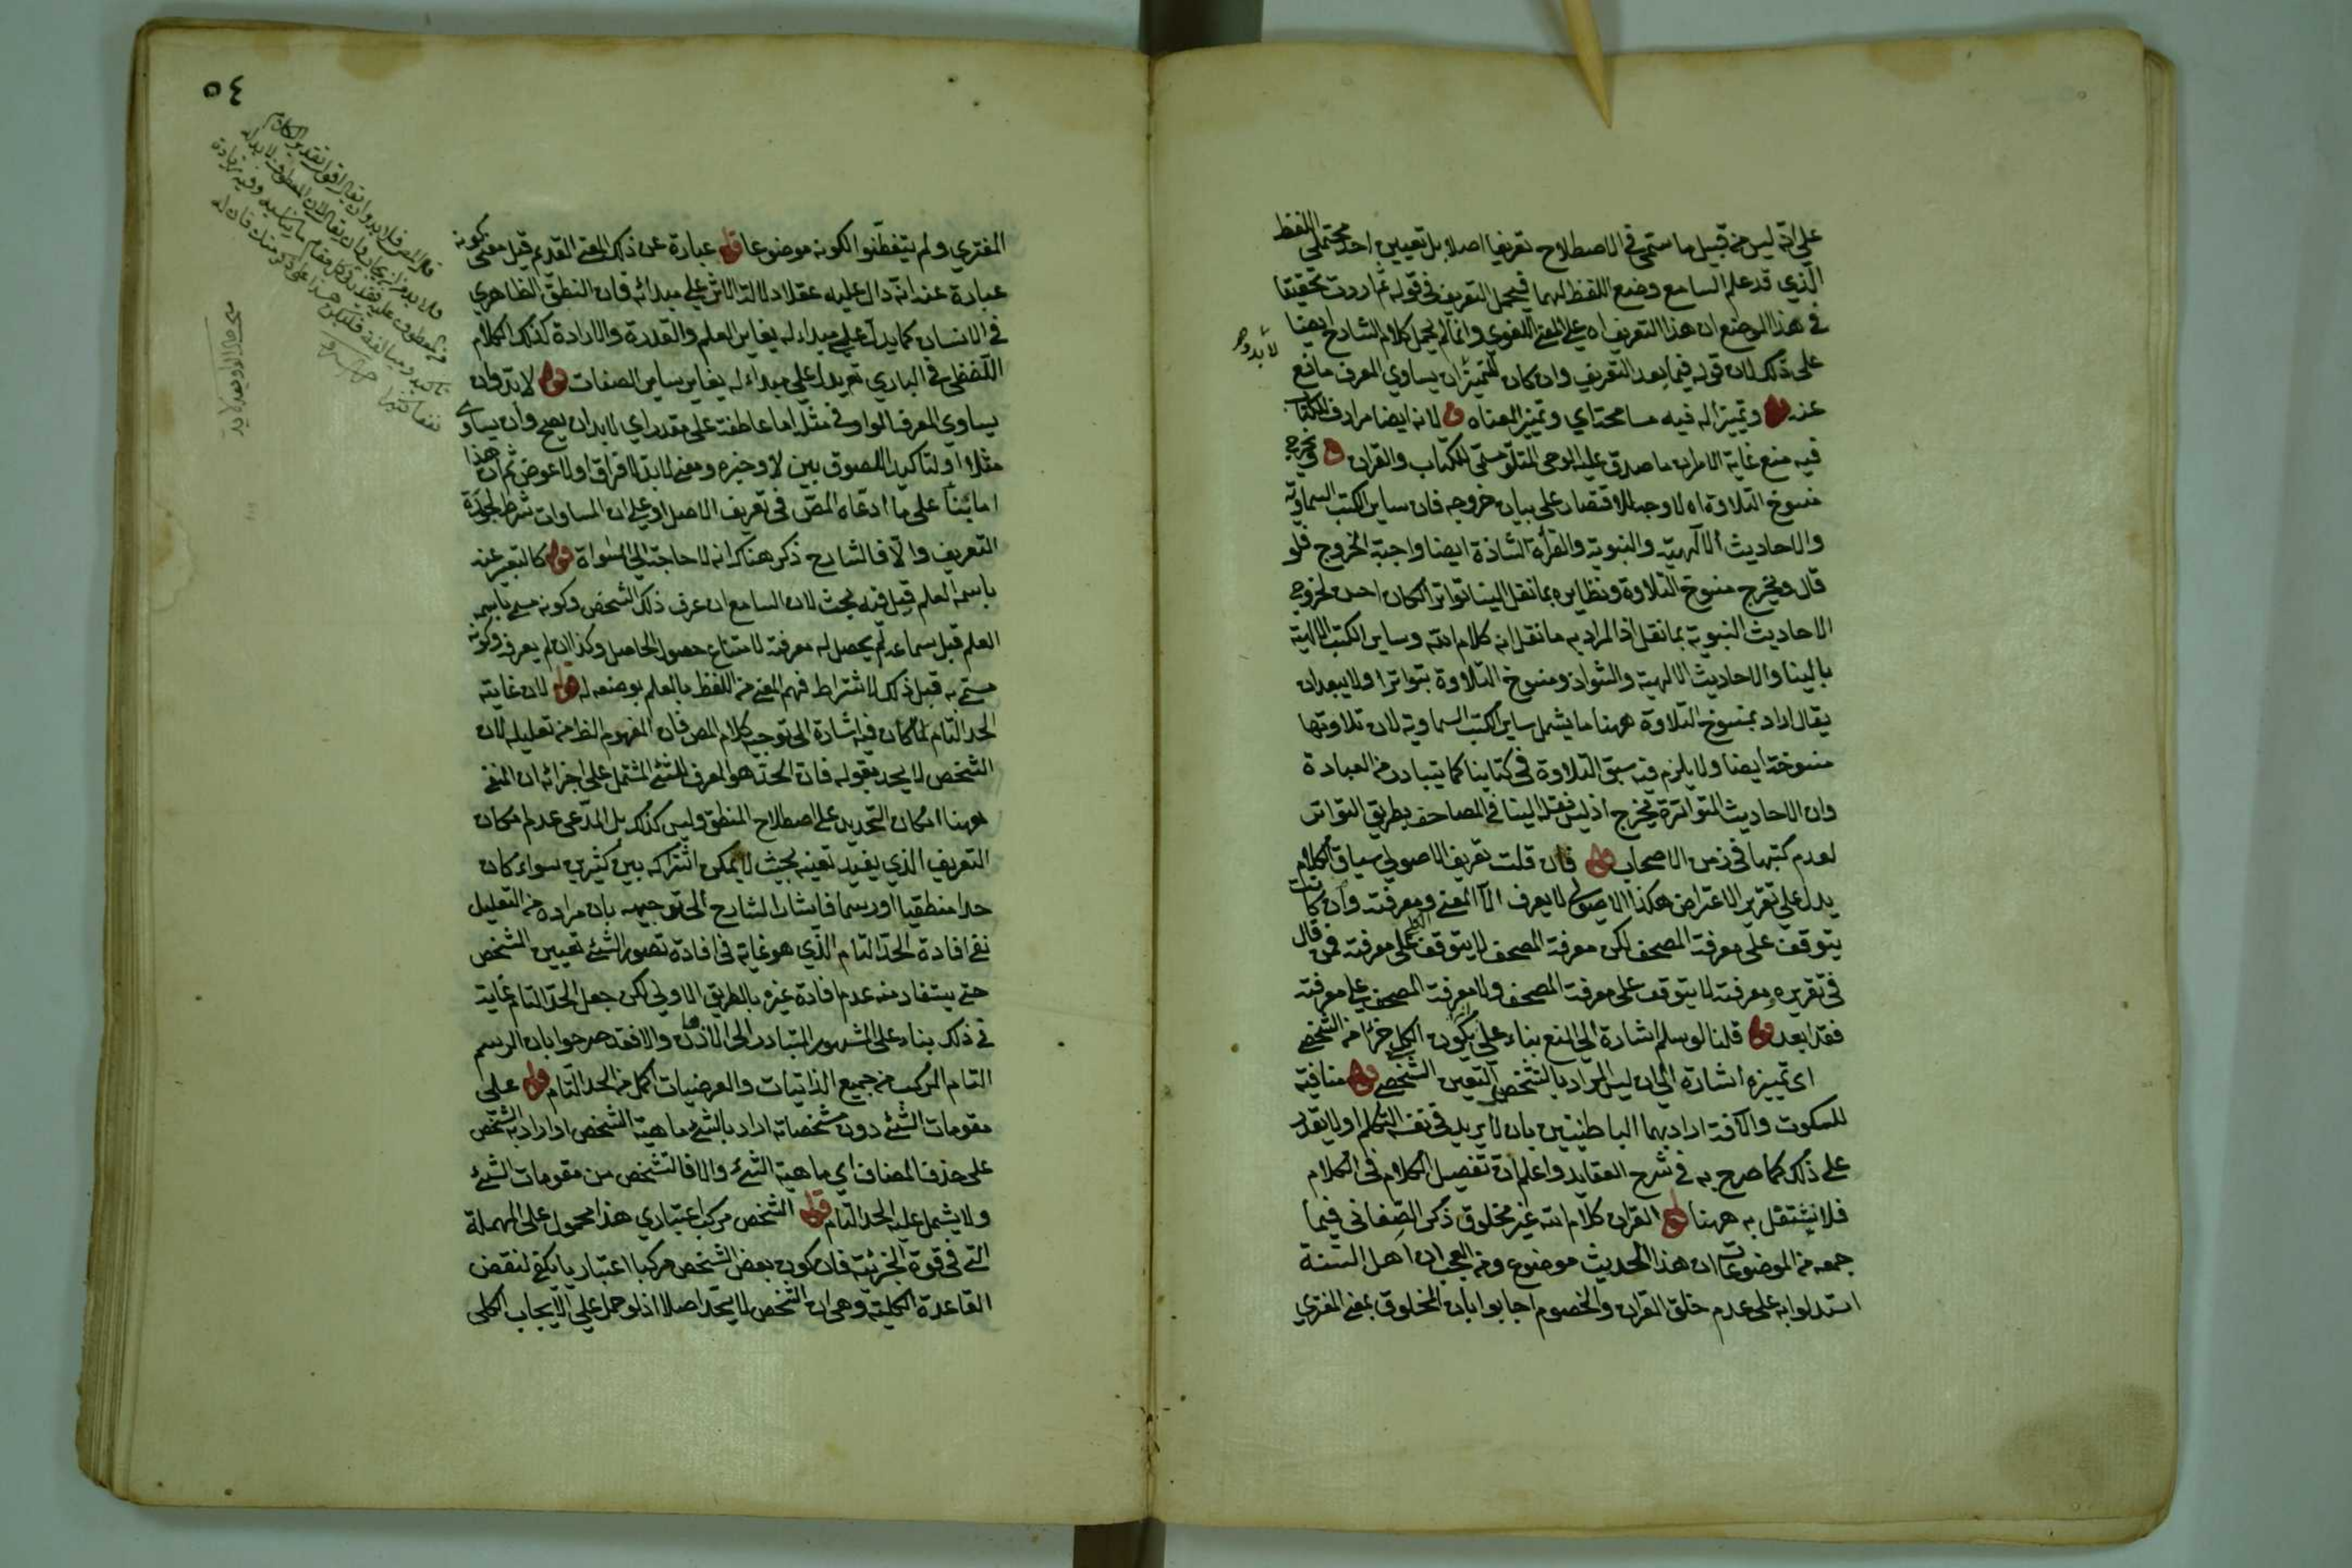 على انه ليس من قبيل ما سمى في الاصطلاح تعريفا اصلا بل تعيين احد محتملى اللفظ
الذي قد علم السامع وضع اللفظ لهما فيحمل التعريف في قوله فان اردت تحقيقا
في هذا الموضع ان هذا التعريف اه على المعنى اللغوي وانما لم يحمل كلام الشارح ايضا
على ذلك لان قوله فيما بعد التعريف وان كان للتمييز ان يساوي المعرف مانع
عنه قوله وتميزا له فيه مسامحة اي وتميز المعناه قوله لانه ايضا مرادف للكتاب
فيه منع غاية الامر ان ما صدق عليه الوحى المتلو مسمى الكتاب والقران قوله ويخرج
منسوخ التلاوة اه لا وجه للاقتصار على بيان خروجه فان ساير الكتب السماوية
والاحاديث الالهية والنبوية والقرأة الشاذة ايضا واجبة الخروج فلو
قال ويخرج منسوخ التلاوة ونظايره بما نقل الينا تواترا لكان احسن لخروج
الاحاديث النبوية بما نقل اذ المراد به ما نقل انه كلام الله وساير الكتب الالهية
بالينا والاحاديث الالهية والشواذ ومنسوخ التلاوة بتواترا ولا يبعد ان
يقال اراد بمنسوخ التلاوة ههنا ما يشمل ساير الكتب السماوية لان تلاوتها
منسوخة ايضا ولا يلزم فيه سبق التلاوة في كتابنا كما يتبادر من العبادة
وان الاحاديث المتواترة يخرج اذ ليس نقله الينا في المصاحف بطريق التواتر
لعدم كتبها في زمن الاصحاب قوله فان قلت تعريف الاصولي سياق الكلام
يدل على تقرير الاعتراض هكذا الاصولى لا يعرف الا المعنى ومعرفته وان كانت
يتوقف على معرفة المصحف لكن معرفة المصحف لا يتوقف على معرفته فمن قال
في تقريره معرفته لا يتوقف على معرفة المصحف ولا معرفة المصحف على معرفته
فقد ابعد قوله قلنا لو سلم اشارة الى المنع بناء على كون الكلى جزأ من الشخصي
اى تمييزه اشارة الى ان ليس المراد بالتشخص التعين الشخصي قوله منافية
للسكوت والآفة اراد بهما الباطنيتين بان لا يريد في نفسه التكلم او لا يقدر
على ذلك كما صرح به في شرح العقايد واعلم ان تفصيل الكلام في الكلام
فلا نشتغل به ههنا قوله القران كلام الله غير مخلوق ذكر الصغاني فيما
جمعه من الموضوعات ان هذا الحديث موضوع ومن العجب ان اهل السنة
استدلوا به على عدم خلق القران والخصوم اجابوا بان المخلوق بمعنى المفتري
لا بد وحد
٥٤
المفتري ولم يتفطنوا لكونه موضوعا قوله عبارة عن ذلك المعنى القديم قيل معنى كونه
عبارة عنه انه دال عليه عقلا دلالة الاثر على مبدائه فان النطق الظاهري
في الانسان كما يدل على مبداء له يغاير العلم والقدرة والارادة كذلك الكلام
اللفظى في الباري تع يدل على مبداء له يغاير ساير الصفات قوله لا بد وان
يساوي المعرف الواو في مثله اما عاطفة على مقدر اي لا بد ان يصح وان يساوى
مثلا او لتاكيد اللصوق بين لا وخبره ومعنى لا بد لا فراق او لا عوض ثم ان هذا
اما بناء على ما ادعاه المص في تعريف الاصل او على ان المساوات شرط لجودة
التعريف والا فالشارح ذكر هناك انه لا حاجة الى المساواة قوله كالتعبير عنه
باسمه العلم قيل فيه بحث لان السامع ان عرف ذلك الشخص وكونه مسمى باسمه
العلم قبل سماعه لم يحصل له معرفة لامتناع حصول الحاصل وكذا ان لم يعرف وكونه
مسمى به قبل ذلك لاشتراط فهم المعنى من اللفظ بالعلم بوضعه له قوله لان غايته
الحد التام لما كان فيه اشارة الى توجيه كلام المص فان المفهوم الظ من تعليله لان
الشخص لا يحد بقوله فان الحد هو المعرف للشئ المشتمل على اجزائه ان المنفى
ههنا امكان التحديد على اصطلاح المنطق وليس كذلك بل المدعى عدم امكان
التعريف الذي يفيد تعينه بحيث لا يمكن اشتراكه بين كثيرين سواء كان
حدا منطقيا او رسما فاشار الشارح الى توجيهه بان مراده من التعليل
نفي افادة الحد التام الذي هو غاية في افادة تصور الشئ تعيين الشخص
حتى يستفاد منه عدم افادة غيره بالطريق الاولى لكن جعل الحد التام غاية
في ذلك بناء على المشهور المتبادر الى الاذهان والا فقد صرحوا بان الرسم
التام المركب من جميع الذاتيات والعرضيات اكمل من الحد التام قوله على
مقومات الشئ دون مشخصاته اراد بالشئ ماهية الشخص او اراد به الشخص
على حذف المضاف اي ماهية الشئ والا فالتشخص من مقومات الشئ
ولا يشمل عليه الحد التام قوله الشخص مركب اعتباري هذا محمول على المهملة
التى في قوة الجزئية فان كون بعض الشخص مركبا اعتباريا يكفى لنقض
القاعدة الكلية وهى ان الشخص لا يحد اصلا اذ لو حمل على الايجاب الكلى